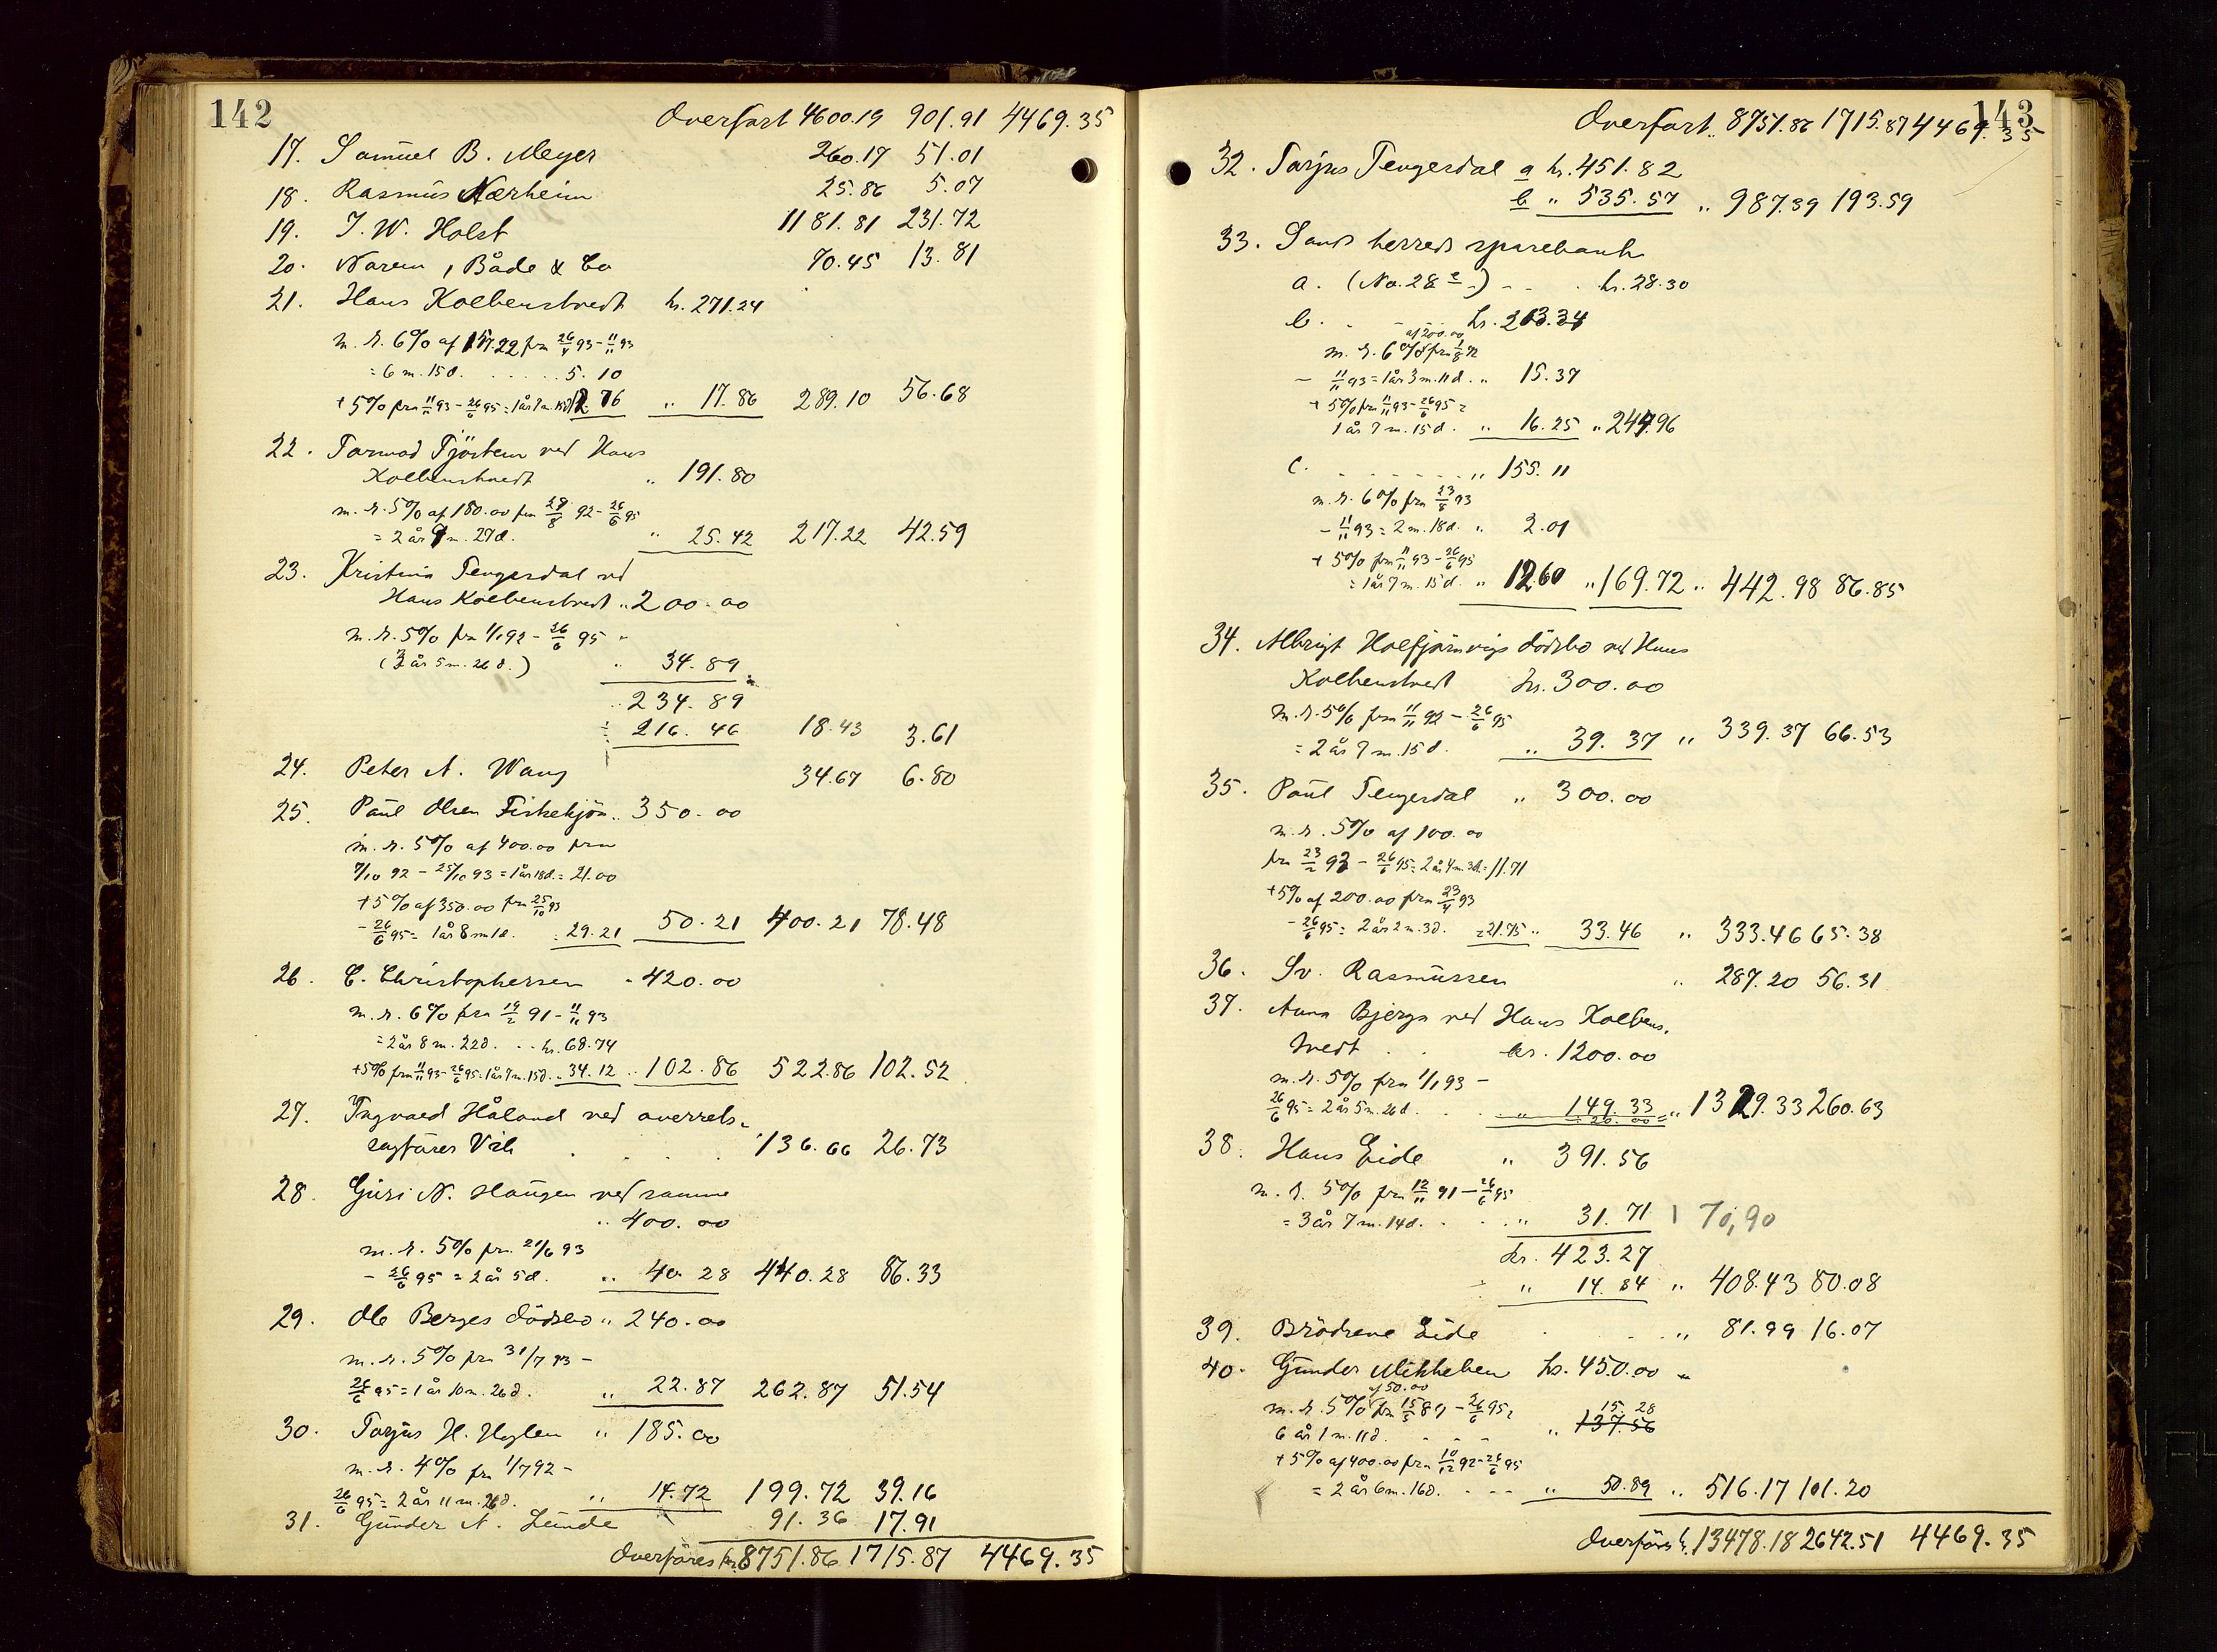 142
Overført 4600.19 901.91 4469.35
17. Samuel B. Meyer 260.17 51.01
18. Rasmus Nærheim 25.86 5.07
19. I. W. Holst 1181.81 231.72
20. Narem, Både & Co 70.45 13.81
21. Hans Kolbenstvedt kr. 271.24
m. r. 6% af 157.22 fra 26/4 93 - 11/11 93
= 6 m. 15 d. . . . . . 5.10
+ 5% fra 11/11 93 - 26/6 95 = 1 år 7 m. 15 d. 12.76 " 17.86 289.10 56.68
22. Tormod Tjöstem ved Hans
Kolbenstvedt " 191.80
m. r. 5% af 180.00 fra 29/8 92 - 26/6 95
= 2 år 9 m. 27 d. " 25.42 217.22 42.59
23. Kristina Tengesdal ved
Hans Kolbenstvedt " 200.00
m. r. 5% fra 1/1 92 - 26/6 95 =
(3 år 5 m. 26 d.) " 34.89
" 234.89
÷ 216.46 18.43 3.61
24. Peter A. Wang 34.67 6.80
25. Paul Olsen Fiskekjön " 350.00
m. r. 5% af 400.00 fra
7/10 92 - 25/10 93 = 1 år 18 d. = 21.00
+ 5% af 350.00 fra 25/10 93
- 26/6 95 = 1 år 8 m 1 d. = 29.21 50.21 400.21 78.48
26. C. Christophersen " 420.00
m. r. 6% fra 19/2 91 - 11/11 93
= 2 år 8 m. 22 d. . . kr. 68.74
+ 5% fra 11/11 93 - 26/6 95 = 1 år 7 m. 15 d. " 34.12 " 102.86 522.86 102.52
27. Ingvald Håland ved overrets-
sagförer Vik . . . . 136.66 26.73
28. Guri N. Haugen ved samme
" 400.00
m. r. 5% fra 21/6 93
- 26/6 95 = 2 år 5 d. " 40.28 440.28 86.33
29. Ole Berges dödsbo " 240.00
m. r. 5% fra 31/7 93 -
26/6 95 = 1 år 10 m. 26 d. " 22.87 262.87 51.54
30. Torjus H. Hylen " 185.00
m. r. 4% fra 1/7 92 -
26/6 95 = 2 år 11 m. 26 d. " 14.72 199.72 39.16
31. Gunder A. Lunde 91.36 17.91
Overføres kr. 8751.86 1715.87 4469.35
143
Overført " 8751.86 1715.87 4469.35
32. Torjus Tengesdal a kr. 451.82
b " 535.57 " 987.39 193.59
33. Sands herreds sparebank
a. (No. 28 e) - - . kr. 28.30
b. . - . . kr. 213.34
af 200.00
m. r. 6% fra 1/8 92
- 11/11 93 = 1 år 3 m. 11 d. " 15.37
+ 5% fra 11/11 93 - 26/6 95 =
1 år 7 m. 15 d. " 16.25 " 244.96
c. . . . . . . " 155.11
m. r. 6% fra 23/8 93
- 11/11 93 = 2 m. 18 d. " 2.01
+ 5% fra 11/11 93 - 26/6 95
= 1 år 7 m. 15 d. " 12.60 " 169.72 " 442.98 86.85
34. Albrigt dödsbo ved Hans
Kolbenstvedt kr. 300.00
m. r. 5% fra 11/11 92 - 26/6 95
= 2 år 7 m. 15 d. " 39.37 " 339.37 66.53
35. Paul Tengesdal " 300.00
m. r. 5% af 100.00
fra 23/2 93 - 26/6 95 = 2 år 4 m. 3 d. = 11.71
+ 5% af 200.00 fra 23/4 93
- 26/6 95 = 2 år 2 m. 3 d. = 21.75 " 33.46 " 333.46 65.38
36. Sv. Rasmussen " 287.20 56.31
37. Anna Bjerga ved Hans Kolbens-
tvedt . . kr. 1200.00
m. r. 5% fra 1/1 93 -
26/6 95 = 2 år 5 m. 26 d. . . . " 149.33 " 1329.33 260.63
÷ 20.00 =
38. Hans Eide " 391.56
m. r. 5% fra 12/11 91 - 26/6 95
= 3 år 7 m. 14 d. . . . " 31.71 | 70,90
kr. 423.27
÷ " 14.84 " 408.43 80.08
39. Brödrene Eide . . . " 81.99 16.07
40. Gunder Mikkelsen kr. 450.00
af 50.00
m. r. 5% fra 15/5 89 - 26/6 95 = 15.28
6 år 1 m. 11 d. . - - - " 137.56
+ 5% af 400.00 fra 10/12 92 - 26/6 95
= 2 år 6 m. 16 d. - - - " 50.89 " 516.17 101.20
Overføres k. 13478.18 2642.51 4469.35